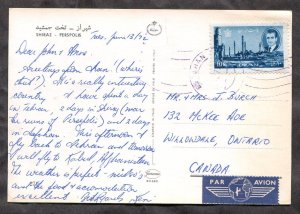 شیراز - تخت جمشید
SHIRAZ - PERSPOLIS
Tues. June 13/72
Dear John & 
Greetings from Iran (where's
that?) It is a really interesting
country. I have spent a day
in Tehran, 2 days in Shiraz (near
the ruins of Persepolis) and 2 days
in Isfahan. This afternoon I
fly back to Tehran and tomorrow
I will fly to Kabul, Afghanistan.
The weather is perfect - mid 80's
and the food & accomodation
excellent.
IRAN
10R
MR & MRS J. BIRCH
132 MCKEE AVE
WILLOWDALE, ONTARIO
CANADA
PAR AVION